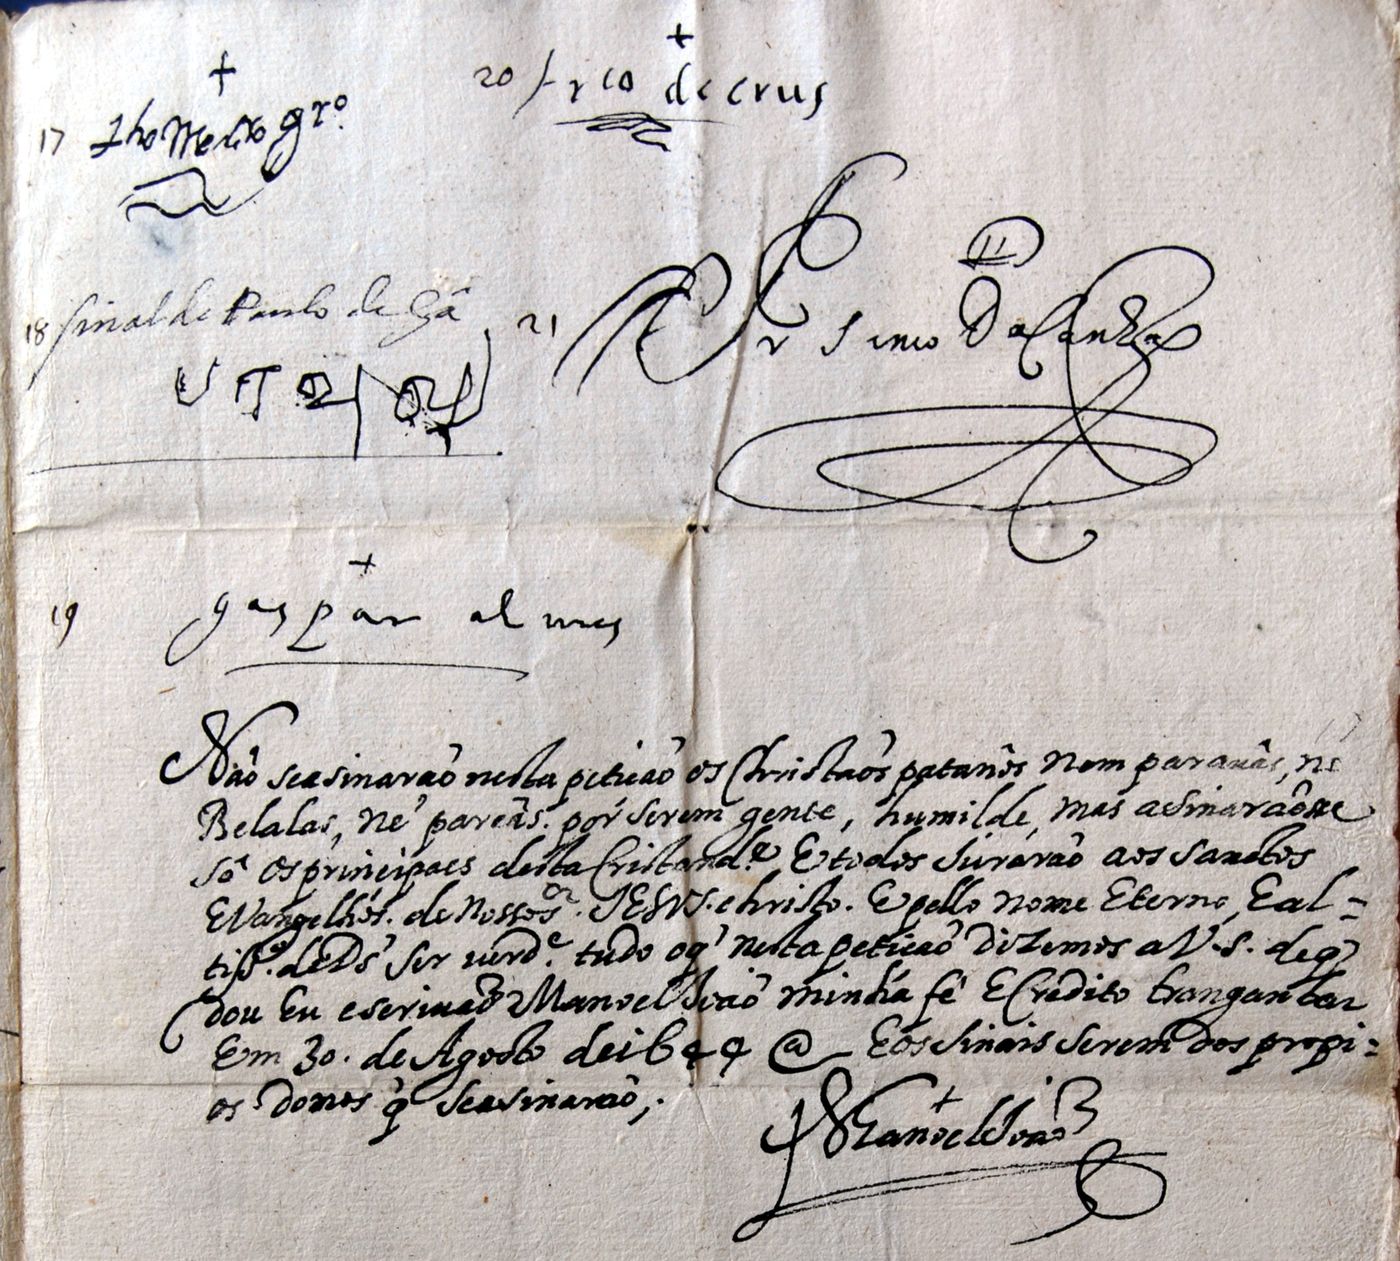 17 Tho Merino grº
20 frco de crus
18 sinal de Paulo de Sâ
21
19 gaspar alures
Não se asinaraõ nesta petiçaõ os Christaõs patanês nem parauâs, nê
Belalas, nê pareâs. por serem gente, humilde, mas asinaraõne
sô os principaes desta Cristandᵉ. E todos Iuraraõ aos sanctos
EVangelhós. de Nosso Sᵒʳ. IESVS. christo. E pello nome Eterno, E al=
tissº. de Ds̃ ser uerdᵉ. tudo oq̃ nesta petiçaõ dizemos a V. S. de q̃
dou Eu escriuaõ Manoel Ioaõ minha fê E Crédito trangambar
Em 30. de Agosto de i644 @ E os sinais serem dos propi=
os donos q̃ se asinaraõ;.
Manoel Ioaõ